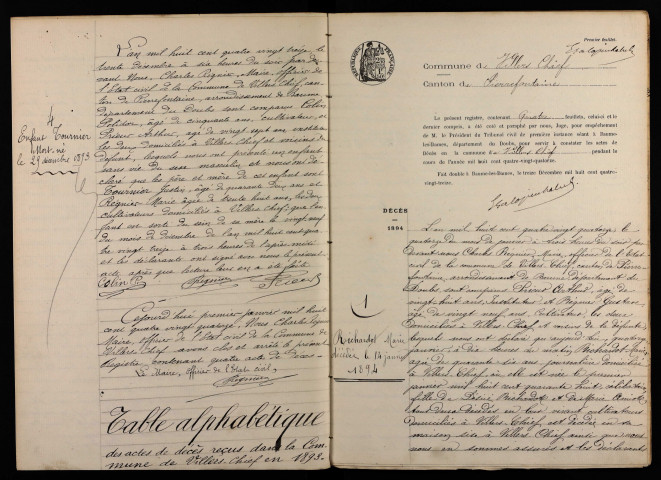 4
Enfant Tournier
Mort-né
le 29 décembre 1893
L'an mil huit cent quatre vingt treize le
trente décembre à six heures du soir par de-
vant Nous, Charles Régnier, Maire, officier de
l'Etat civil de la Commune de Villers Chief, can-
ton de Pierrefontaine, arrondissement de Baume
département du Doubs sont comparus Colin
Polidor, âgé de cinquante ans, cultivateur, et
Arthur, âgé de vingt sept ans
les deux domiciliés à Villers Chief et voisins du
défunt, lesquels nous ont présenté un enfant
sans vie du sexe masculin et nous ont dé-
claré que les père et mère de cet enfant sont
Tournier Justin, âgé de quarante deux ans et
Régnier Marie âgée de trente huit ans, tous deux
cultivateurs domiciliés à Villers Chief, que l'en-
fant est sorti du sein de sa mère le vingt neuf
du mois de décembre de l'an mil huit cent qua-
tre vingt treize à trois heures de l'après midi
et les déclarants ont signé avec nous le présent
acte après que lecture leur en a été faite
Colin P.
Régnier
Cejourd'hui premier janvier mil huit
cent quatre vingt quatorze, Nous Charles Régnier
Maire, officier de l'Etat civil de la Commune de
Villers Chief avons clos et arrêté le présent
Registre contenant quatre actes de décès
Le Maire, officier de l'Etat civil,
Régnier
Table alphabétique
des actes de décès reçus dans la Com-
mune de Villers-Chief en 1893.
Premier feuillet.
RÉPUBLIQUE FRANÇAISE
Commune de Villers Chief
Canton de Pierrefontaine
Le présent registre, contenant Quatre feuillets, celui-ci et le
dernier compris, a été coté et paraphé par nous, Juge, pour empêchement
de M. le Président du Tribunal civil de première instance séant à Baume-
les-Dames, département du Doubs, pour servir à constater les actes de
Décès en la commune de Villers Chief pendant le
cours de l'année mil huit cent quatre-vingt-quatorze.
Fait double à Baume-les-Dames, le trente Décembre mil huit cent quatre-
vingt-treize.
DÉCÈS
1894
1
Richardot Marie
décédée le 14 janvier
1894
L'an mil huit cent quatre vingt quatorze le
quatorze du mois de janvier à trois heures du soir par
devant nous Charles Régnier, Maire, officier de l'Etat
civil de la commune de Villers Chief, canton de Pierre-
fontaine, arrondissement de Baume, département du
Doubs, sont comparus Arthur, âgé de
vingt huit ans, Instituteur et Régnier Gustave,
âgé de vingt neuf ans, Cultivateur, les deux
domiciliés à Villers Chief et voisins de la défunte,
lesquels nous ont déclaré qu'aujourd'hui quatorze
janvier à heures du matin Richardot Marie
âgée de quarante six ans journalière domiciliée
à Villers Chief, où elle est née le premier
janvier mil huit cent quarante huit, célibataire
fille de Richardot et de Marie
décédés en leur vivant cultivateurs
domiciliés à Villers-Chief, est décédée en sa
maison sise à Villers Chief, ainsi que nous
nous en sommes assurés et les déclarants